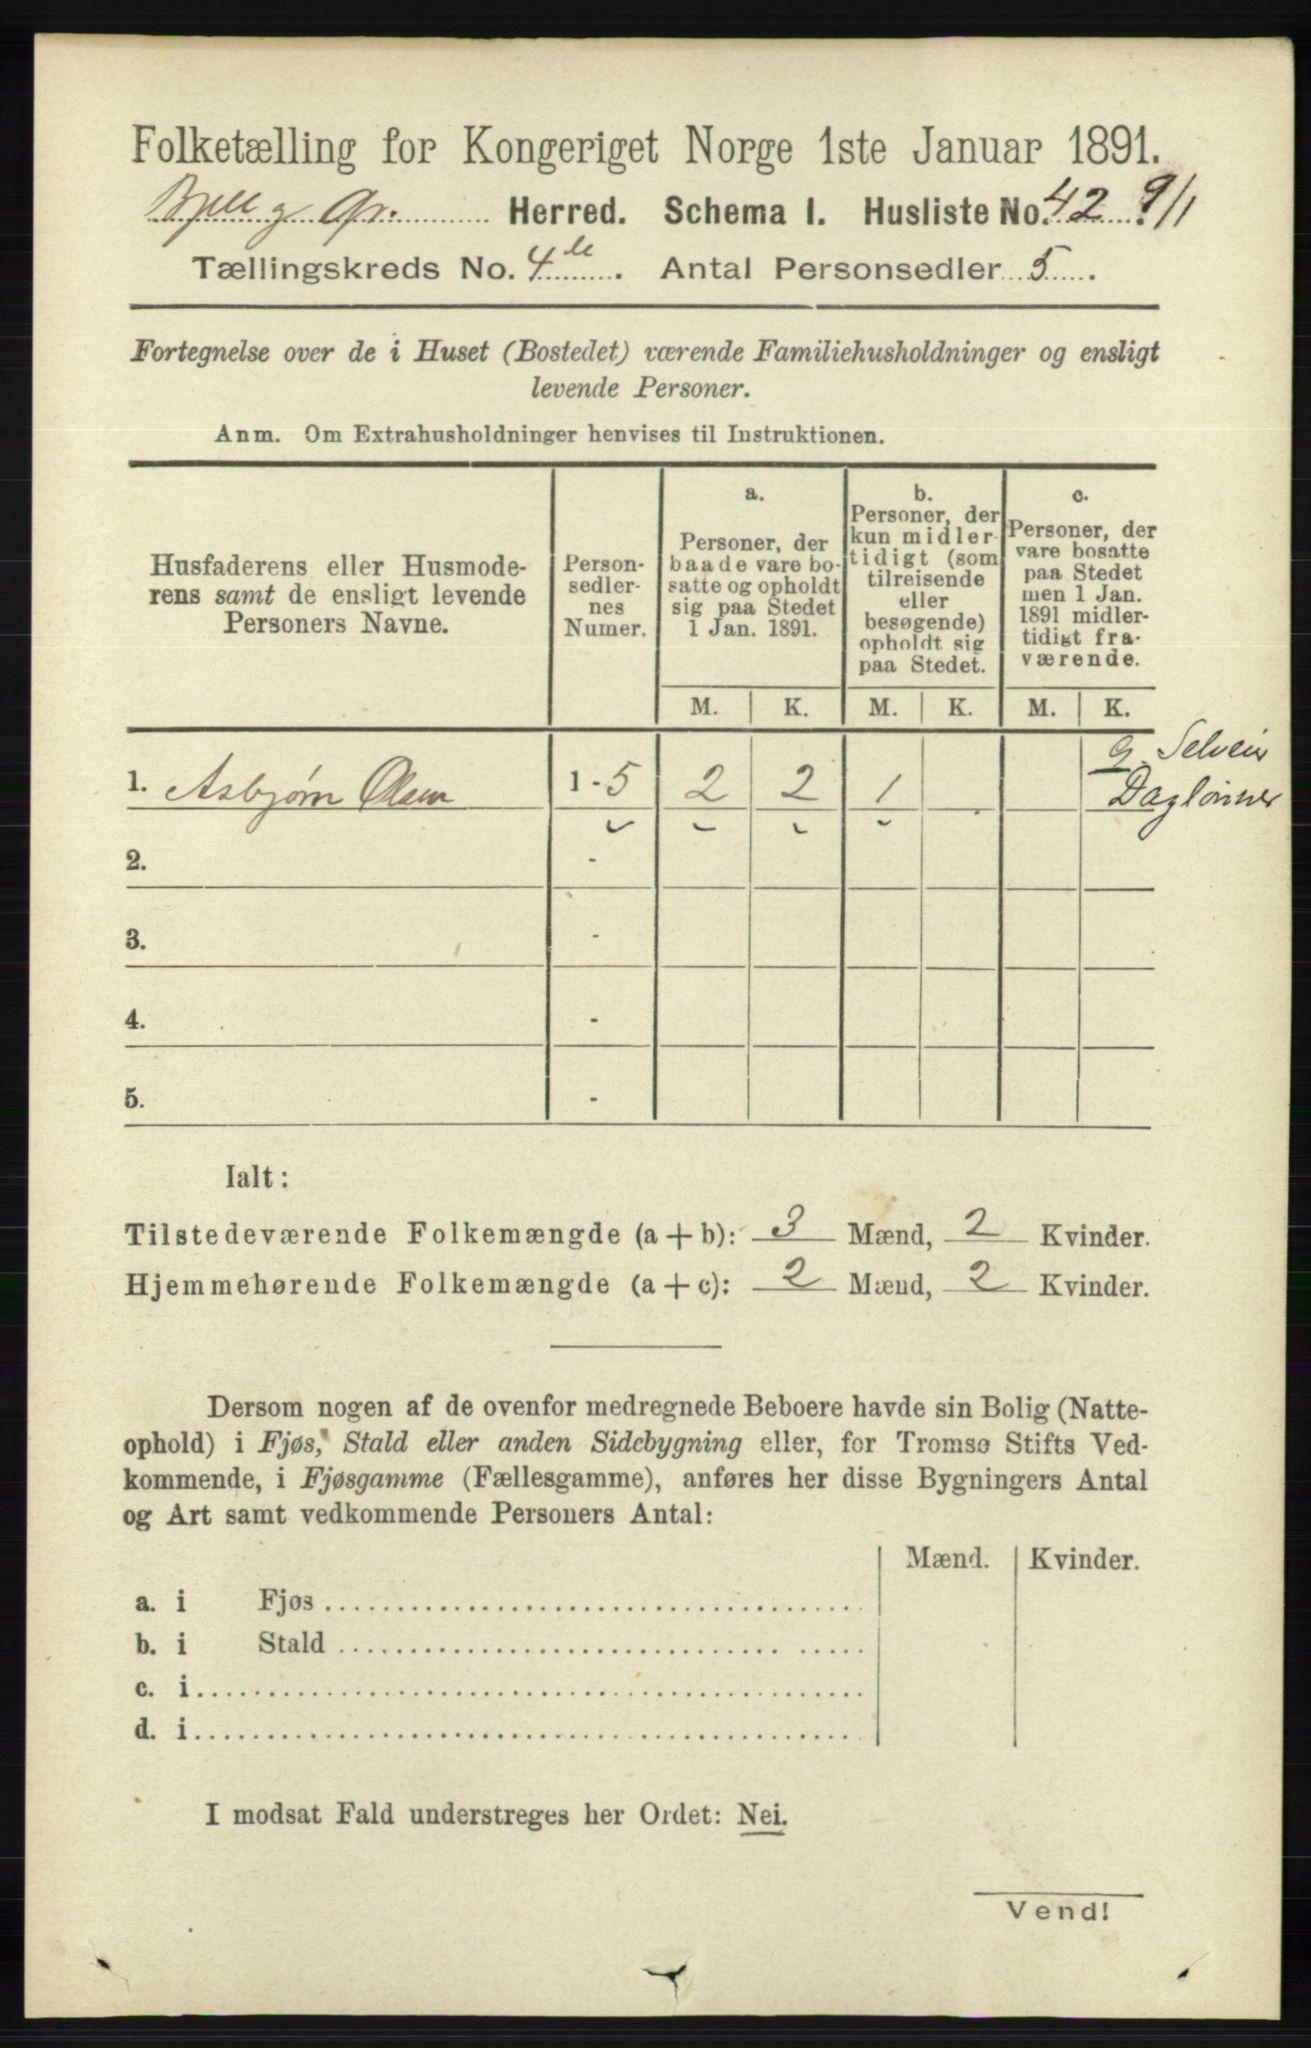 Folketælling for Kongeriget Norge 1ste Januar 1891.
Bjell og Gr. Herred. Schema I. Husliste No. 42 9/1
Tællingskreds No. 4de. Antal Personsedler 5.
Fortegnelse over de i Huset (Bostedet) værende Familiehusholdninger og ensligt
levende Personer.
Anm. Om Extrahusholdninger henvises til Instruktionen.
Husfaderens eller Husmode-
rens samt de ensligt levende
Personers Navne.
Person-
sedler-
nes
Numer.
a.
Personer, der
baade vare bo-
satte og opholdt
sig paa Stedet
1 Jan. 1891.
b.
Personer, der
kun midler-
tidigt (som
tilreisende
eller
besøgende)
opholdt sig
paa Stedet.
c.
Personer, der
vare bosatte
paa Stedet
men 1 Jan.
1891 midler-
tidigt fra-
værende.
M. K. M. K. M. K.
G. Selveier
Daglønner
1. Asbjørn Olsen 1 - 5 2 2 1
2. -
3. -
4. -
5. -
Ialt:
Tilstedeværende Folkemængde (a + b): 3 Mænd, 2 Kvinder.
Hjemmehørende Folkemængde (a + c): 2 Mænd, 2 Kvinder.
Dersom nogen af de ovenfor medregnede Beboere havde sin Bolig (Natte-
ophold) i Fjøs, Stald eller anden Sidebygning eller, for Tromsø Stifts Ved-
kommende, i Fjøsgamme (Fællesgamme), anføres her disse Bygningers Antal
og Art samt vedkommende Personers Antal:
Mænd. Kvinder.
a. i Fjøs
b. i Stald
c. i
d. i
I modsat Fald understreges her Ordet: Nei.
Vend!